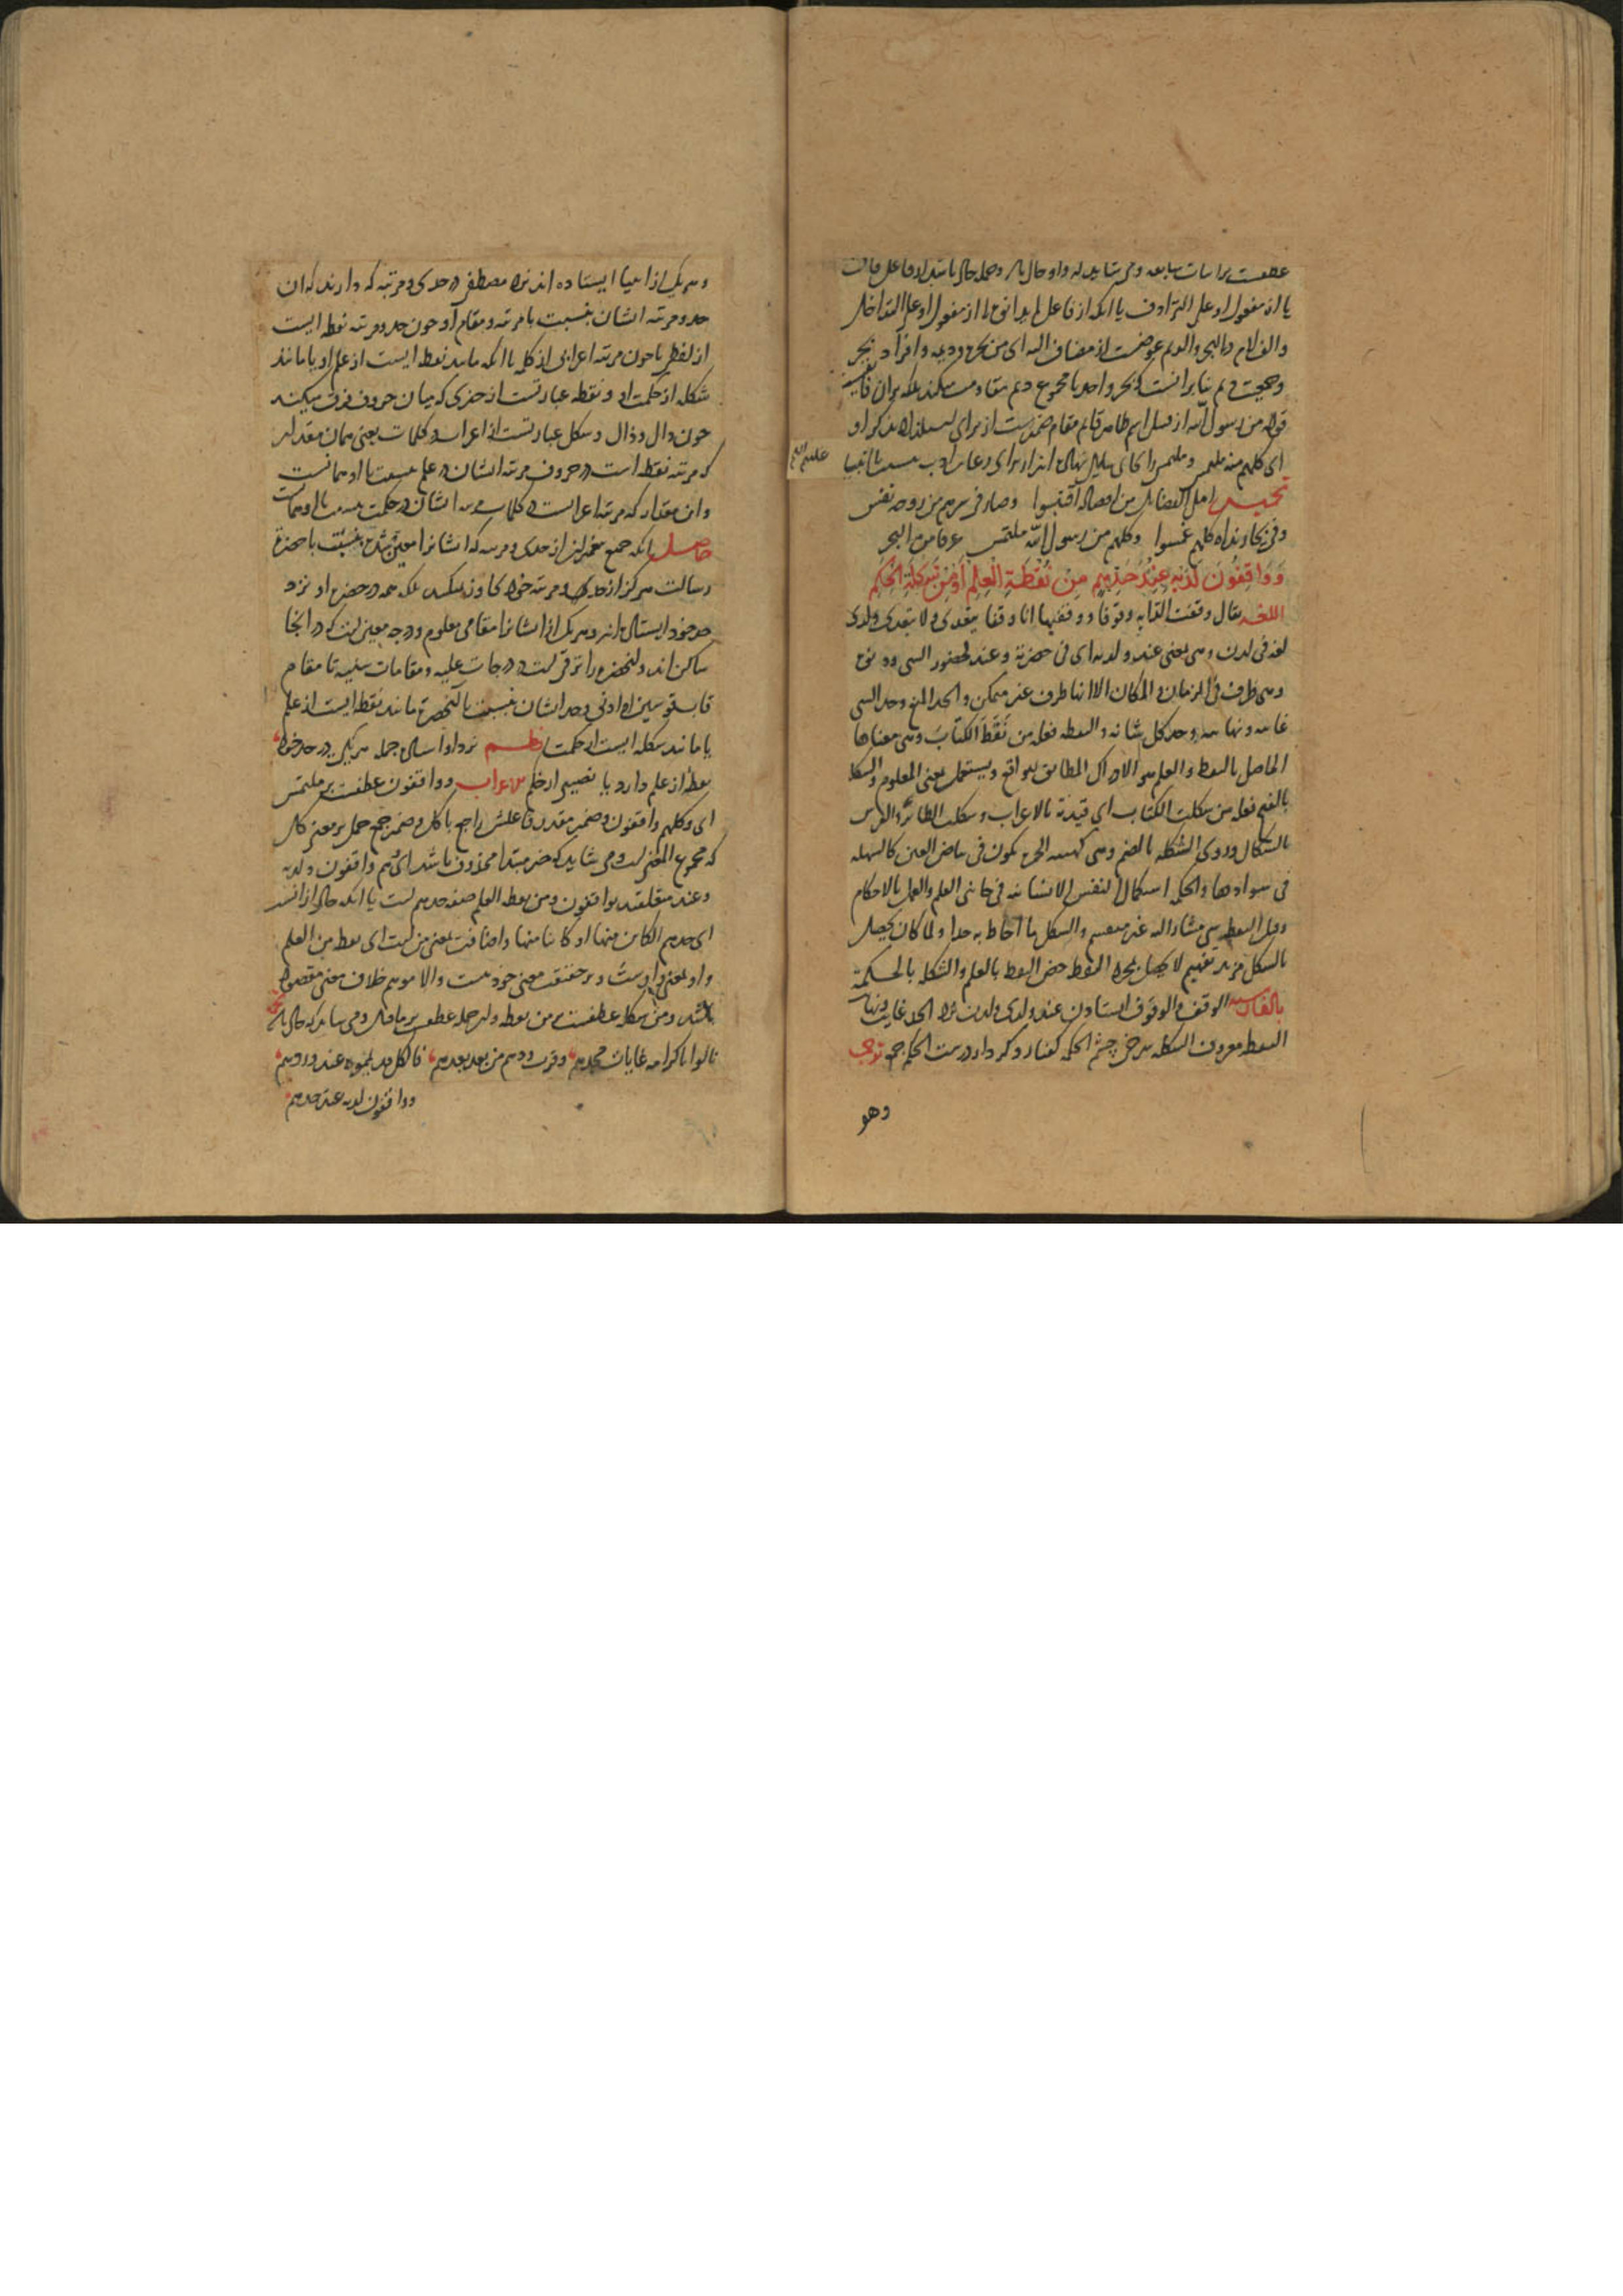 عطفست بر ابیات سابقه و می شاید که واو حال باشد و جمله حال باشد از فاعل فاق
یا از مفعول او علی الترادف یا آنکه از فاعل لم یدانوه یا از مفعول او علی التداخل
والف لام در البحر والدیم عوضست از مضاف الیه ای من بحره ودیمه وافراد بحر
وجمعیت دیم بنا بر آنست که بحر واحد با مجموع دیم مقاومت میکند بلکه بر آن فایق
قوله من رسول الله از قبیل اسم ظاهر قایم مقام ضمیرست از برای استلذاذ بذکر او
ای کلهم منه ملتمس
علیهم السلم
تخمیس اهل الفضایل من افضاله اقتبسوا وصار فی سرهم من روحه نفس
وفی بحار نداه کلهم غمسوا وکلهم من رسول الله ملتمس غرفا من البحر
وَوَاقِفُونَ لَدَيْهِ عِنْدَ حَدِّهِمِ مِنْ نُقْطَةِ الْعِلْمِ أَوْ مِنْ شَكْلَةِ الْحِكَمِ
اللغة یقال وقفت الدابه وقوفا ووقفتها انا وقفا یتعدی ولا یتعدی ولدی
لغة فی لدن وهی بمعنی عند ولدیه ای فی حضرته وعند لحضور الشی ودنوه
وهی ظرف فی الزمان والمکان الا انها ظرف غیر متمکن والحد المنع وحد الشی
غایته ونهایته وحد کل شانه والنقطه فعله من نَقَطَ الکتابَ وهی معناها
الحاصل بالنقط والعلم هو الادراک المطابق للواقع ویستعمل بمعنی المعلوم والشکله
بالفتح فعله من شکلت الکتاب ای قیدته بالاعراب وشکلت الطائر والفرس
بالشکال وروی الشکله بالضم وهی کهیئه الحمرة تکون فی بیاض العین کالشهله
فی سوادها والحکمه استکمال النفس الانسانیه فی جانبی العلم والعمل بالاحکام
وقیل النقطه شی مشار الیه غیر منقسم والشکل ما احاط به حد او ولما کان یحصل
بالشکل مزید تفهیم لا یحصل بمجرد النقط خص النقط بالعلم والشکله بالحکمة
بالفارسیه الوقف والوقوف ایستادن عند ولدی ولدن نزد الحد غایت ونهایت
النقطه معروف الشکله سرخی چشم الحکمه گفتار وکردار درست الحکم جمع ترجمه
وهو
وهر یک از انبیا ایستاده اند نزد مصطفی در حدی ومرتبه که دارند که آن
حد ومرتبه ایشان بنسبت با مرتبه ومقام او چون حد ومرتبه نقطه ایست
از لفظ یا چون مرتبه اعرابی از کلمه یا آنکه مانند نقطه ایست از علم او یا مانند
شکله از حکمت او ونقطه عبارتست از چیزی که میان حروف فرق میکند
چون دال وذال وشکل عبارتست از اعراب وکلمات یعنی همان مقدار
که مرتبه نقطه است در حروف مرتبه ایشان در علم بنسبت با او همانست
وآن مقدار که مرتبه اعرابست در کلمات مرتبه ایشان در حکمت بنسبت با او همانست
حاصل آنکه جمیع پیغمبران از حدی ومرتبه که ایشانرا معین شده بنسبت با حضرت
رسالت هرگز از حد ومرتبه خود تجاوز نمیکنند بلکه همه در حضرت او نزد
حد خود ایستاده اند وهر یک از ایشانرا مقامی معلوم ودرجه معین است که در آنجا
ساکن اند وآنحضرت را ترقی است در درجات علیه ومقامات سنیه تا مقام
قاب قوسین او ادنی وحد ایشان بنسبت با آنحضرت مانند نقطه ایست از علم
یا مانند شکله ایست از حکمت نظم نزد او استاده جمله هر یکی در حد خود
نقطه از علم دارد یا نصیبی از حکم الاعراب وواقفون عطفست بر ملتمس
ای وکلهم واقفون وضمیر مقدر فاعلش راجع با کل وضمیر جمع حمل بر معنی کل
که مجموع المعنی است ومی شاید که خبر مبتدا محذوف باشد ای هم واقفون ولدیه
وعند متعلقند بواقفون ومن نقطه العلم صفه حدهم است یا آنکه حال از آنست
ای حدهم الکاین منها او کاینا منها واضافت بمعنی من است ای نقطه من العلم
واو بمعنی واوست وبر حقیقت معنی خود نیست والا موهم خلاف معنی مقصود
باشد ومن شکله عطفست بر من نقطه واین جمله عطف بر ماقبل ومی شاید که حال باشد
نالوا باکرامه غایات مجدهم وقرب ودهم من بعد بعدهم فالکل قد لمحوه عند وردهم
وواقفون لدیه عند حدهم